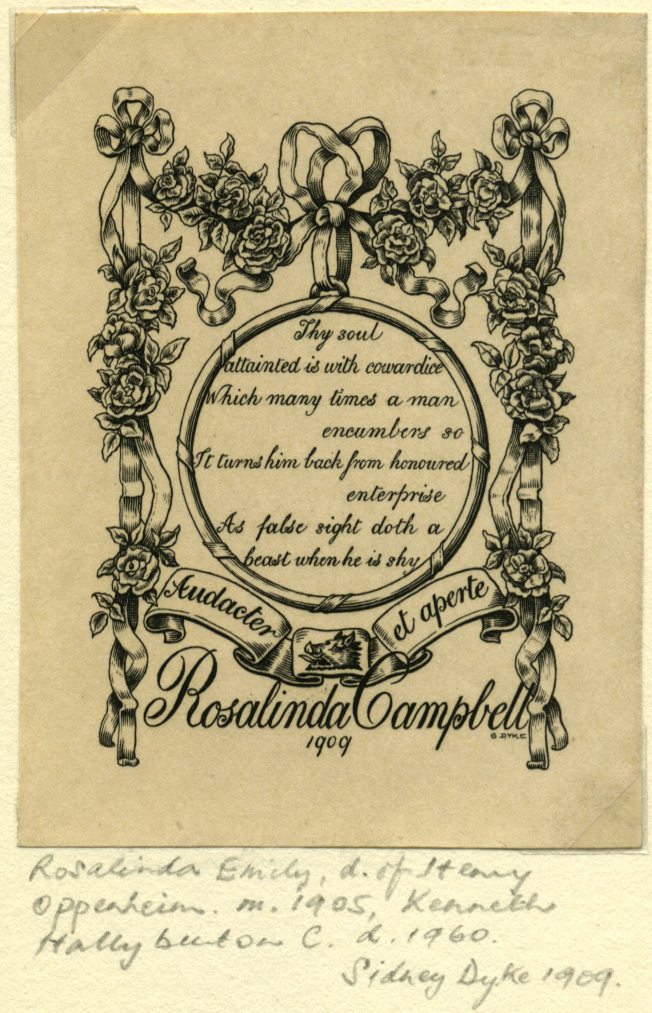 Thy soul
attainted is with cowardice
Which many times a man
encumbers so
It turns him back from honoured
enterprise
As false sight doth a
beast when he is shy
Audacter et aperte
Rosalinda Campbell
1909
S. DYKE
Rosalinda Emily, d. of Henry
Oppenheim. m. 1905, Kenneth
Hallyburton C. d. 1960.
Sidney Dyke 1909.